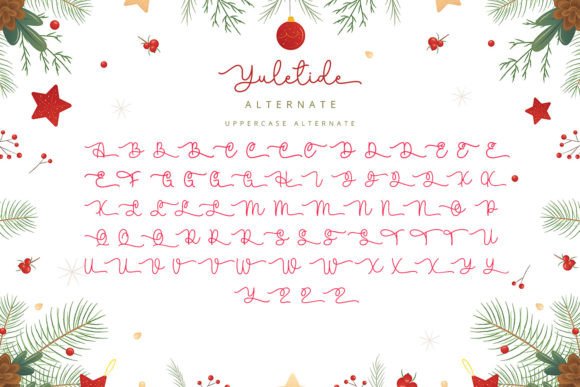 Yuletide
ALTERNATE
UPPERCASE ALTERNATE
A B B C C C D D D E E
E F G G G H I J J J K K
K L L L M M M N N N O P
Q Q Q R R R S S S T T T U
U U V V V W W W X X X Y Y
Y Z Z Z